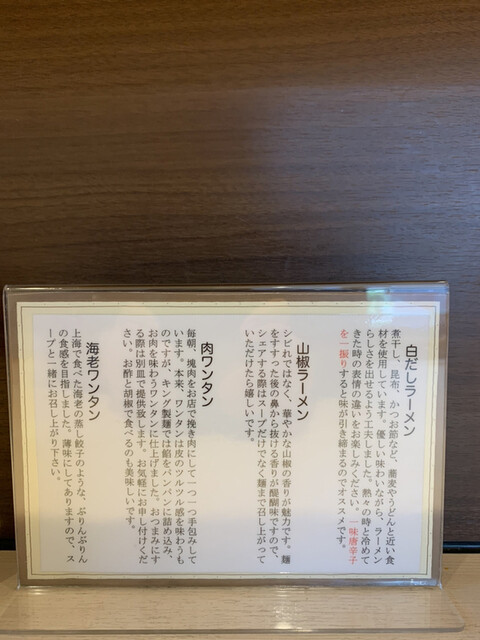 白だしラーメン
煮干し、昆布、かつお節など、蕎麦やうどんと近い食
材を使用しています。優しい味わいながら、ラーメン
らしさを出せるよう工夫しました。熱々の時と冷めて
きた時の表情の違いをお楽しみください。一味唐辛子
を一振りすると味が引き締まるのでオススメです。
山椒ラーメン
シビれではなく、華やかな山椒の香りが魅力です。麺
をすすった後の鼻から抜ける香りが醍醐味ですので、
シェアする際はスープだけでなく麺まで召し上がって
いただけたら嬉しいです。
肉ワンタン
毎朝、塊肉をお店で挽き肉にして一つ一つ手包みして
います。本来、ワンタンは皮のツルツル感を味わうも
のですが、キング製麺では餡をパンパンに詰め込み、
お肉を味わうワンタンに仕上げました。おつまみにす
る際は別皿で提供致します。お気軽にお申し付けくだ
さい。お酢と胡椒で食べるのも美味しいです。
海老ワンタン
上海で食べた海老の蒸し餃子のような、ぷりんぷりん
の食感を目指しました。薄味にしてありますので、ス
ープと一緒にお召し上がり下さい。